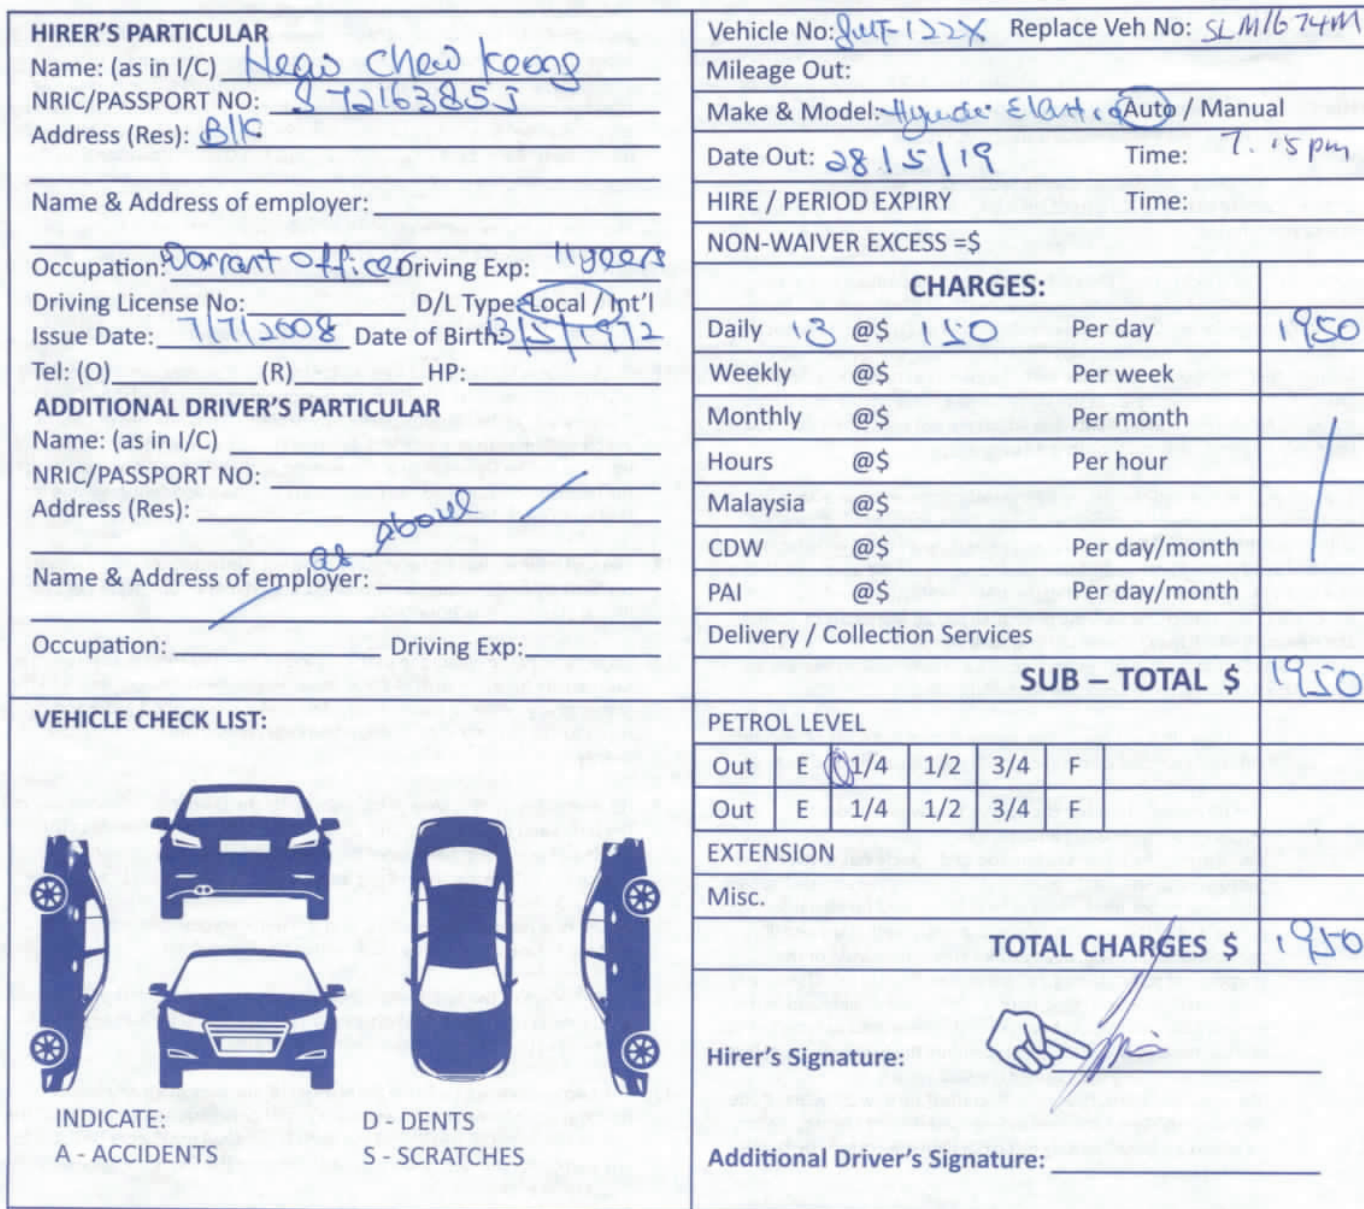 HIRER'S PARTICULAR
Name: (as in I/C) Chew Keong
NRIC/PASSPORT NO: S7216385J
Address (Res): Blk
Name & Address of employer:
Occupation: Warrant Officer Driving Exp: 11 years
Driving License No: D/L Type: Local / Int'l
Issue Date: 7/7/2008 Date of Birth: 13/5/1972
Tel: (O) (R) HP:
ADDITIONAL DRIVER'S PARTICULAR
Name: (as in I/C)
NRIC/PASSPORT NO:
Address (Res):
as above
Name & Address of employer:
Occupation: Driving Exp:
VEHICLE CHECK LIST:
INDICATE: D - DENTS
A - ACCIDENTS S - SCRATCHES
Vehicle No: Replace Veh No: SLM1674M
Mileage Out:
Make & Model: Auto / Manual
Date Out: 28/5/19 Time: 7.15pm
HIRE / PERIOD EXPIRY Time:
NON-WAIVER EXCESS =$
CHARGES:
Daily 13 @$ 150 Per day 1950
Weekly @$ Per week
Monthly @$ Per month
Hours @$ Per hour
Malaysia @$
CDW @$ Per day/month
PAI @$ Per day/month
Delivery / Collection Services
SUB – TOTAL $ 1950
PETROL LEVEL
Out E 1/4 1/2 3/4 F
Out E 1/4 1/2 3/4 F
EXTENSION
Misc.
TOTAL CHARGES $ 1950
Hirer's Signature:
Additional Driver's Signature: